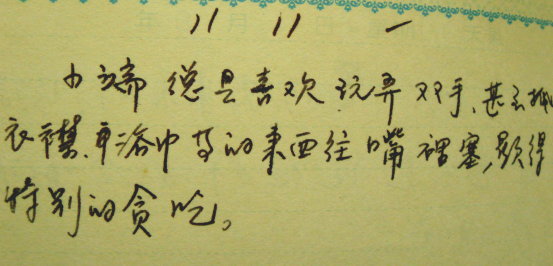 11 11 一
小端总是喜欢玩弄双手、甚至抓
衣襟、车浴巾等的东西往嘴裡塞,显得
特别的贪吃。